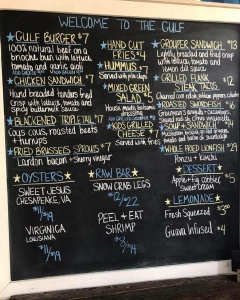 WELCOME TO THE GULF
GULF BURGER $7
100% natural beef on a
brioche bun with lettuce,
tomato and garlic aioli
CHICKEN SANDWICH $7
Hand breaded tenders fried
crisp with lettuce, tomato and
spicy buttermilk sauce
BLACKENED TRIPLETAIL $17
Cous cous, roasted beets
+ turnips
FRIED BRUSSELS SPROUTS $7
Lardon bacon + sherry vinegar
OYSTERS
SWEET JESUS
CHESAPEAKE, VA
VIRGINICA
LOUISIANA
HAND CUT
FRIES $4
HUMMUS $7
Served with pita chips
MIXED GREEN
SALAD $5
House made balsamic
dressing
KIDS GRILLED
CHEESE $7
Served with fries
RAW BAR
SNOW CRAB LEGS
$12/$22
PEEL + EAT
SHRIMP
GROUPER SANDWICH $13
Lightly breaded and fried crisp
with lettuce, tomato and
lemon dill sauce
GRILLED FLANK
STEAK TACOS $12
ROASTED SWORDFISH $16
SOUP + SANDWICH $14
WHOLE FRIED LIONFISH $29
Ponzu + kimchi
DESSERT
Apple + fig cobbler
Sweet cream $5
LEMONADE
Fresh Squeezed $3.50
Guava Infused $4